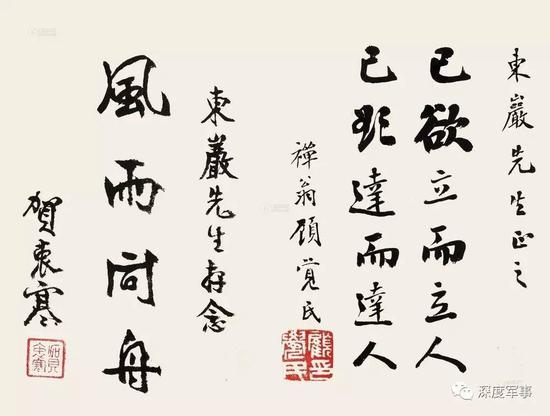 東巖先生正之
己欲立而立人
己欲達而達人
禪翁顧覺民
東巖先生存念
風雨同舟
賀衷寒
深度军事